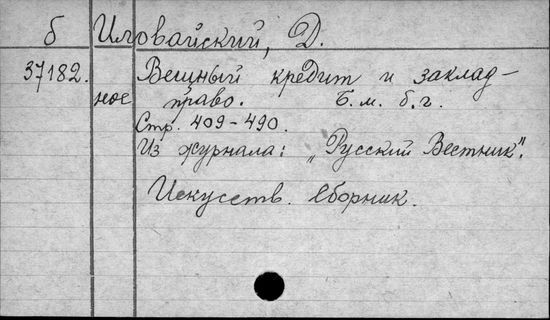 б Иловайский, Д.
37182. Вещный кредит и заклад-
ное право. Б.м. б.г.
Стр. 409-490.
Из журнала: „Русский Вестник".
Искусств. сборник.